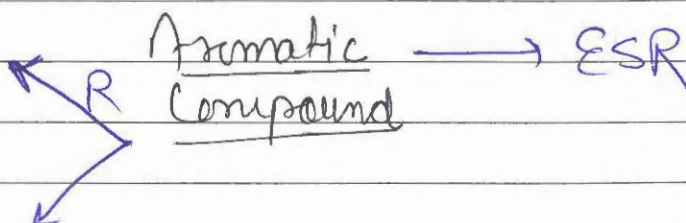 Aromatic → ESR
R Compound